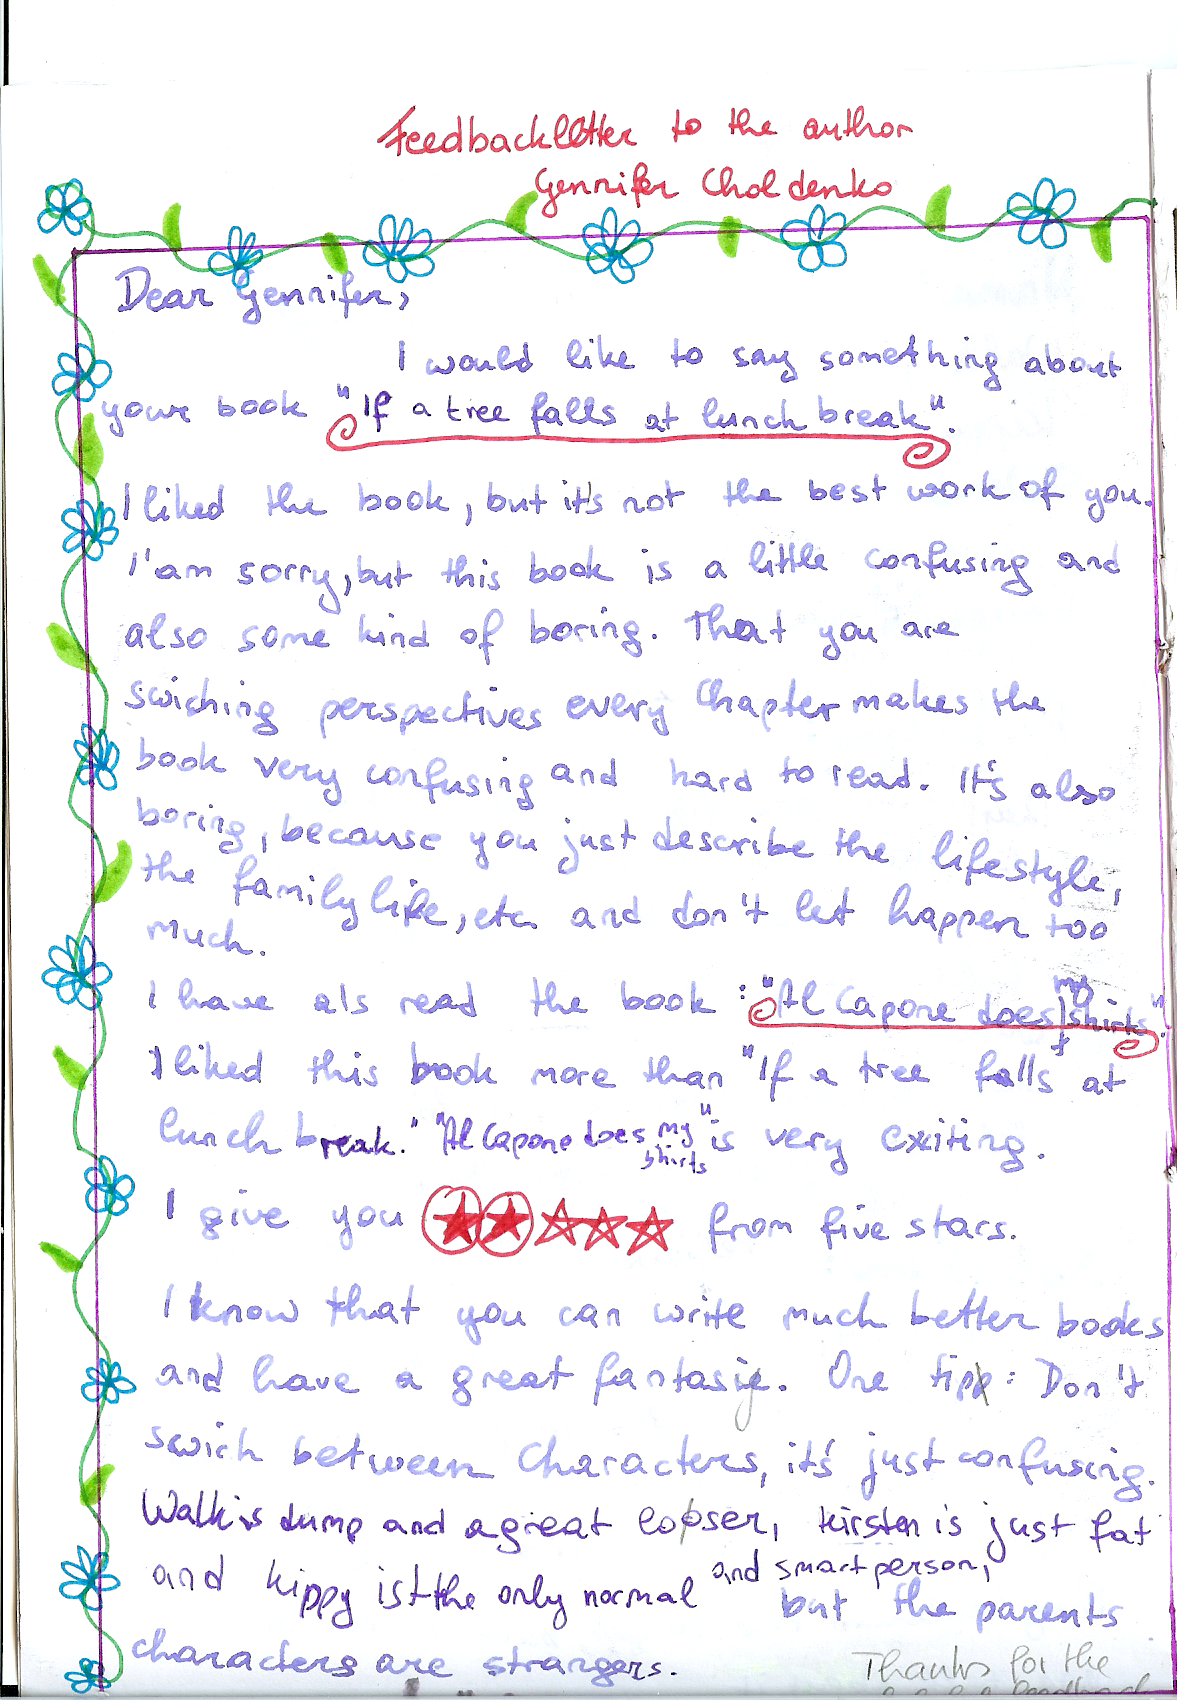 Feedbackletter to the author
Gennifer Choldenko
Dear Gennifer,
I would like to say something about
your book "If a tree falls at lunch break".
I liked the book, but it's not the best work of you.
I'am sorry, but this book is a little confusing and
also some kind of boring. That you are
swiching perspectives every Chapter makes the
book very confusing and hard to read. It's also
boring, because you just describe the lifestyle,
the family life, etc. and don't let happen too
much.
I have als read the book : "Al Capone does my shirts".
I liked this book more than "If a tree falls at
lunch break." "Al Capone does my shirts" is very exiting.
I give you ★★☆☆☆ from five stars.
I know that you can write much better books
and have a great fantasie. One tipp: Don't
swich between Characters, it's just confusing.
Walk is dump and a great looser, kirsten is just fat
and kippy is the only normal and smart person,
but the parents
characters are strangers.
Thanks for the